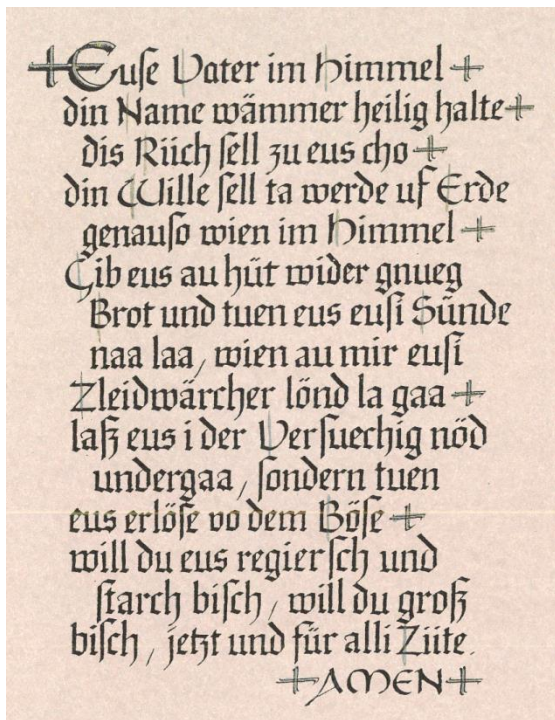 +Euſe Vater im Himmel +
din Name wämmer heilig halte+
dis Riich ſell zu eus cho +
din Wille ſell ta werde uf Erde
genauſo wien im Himmel +
Gib eus au hüt wider gnueg
Brot und tuen eus euſi Sünde
naa laa, wien au mir euſi
Zleidwärcher lönd la gaa +
laß eus i der Verſuechig nöd
undergaa, ſondern tuen
eus erlöſe vo dem Böſe +
will du eus regierſch und
ſtarch biſch, will du groß
biſch, jetzt und für alli Ziite.
+AMEN+